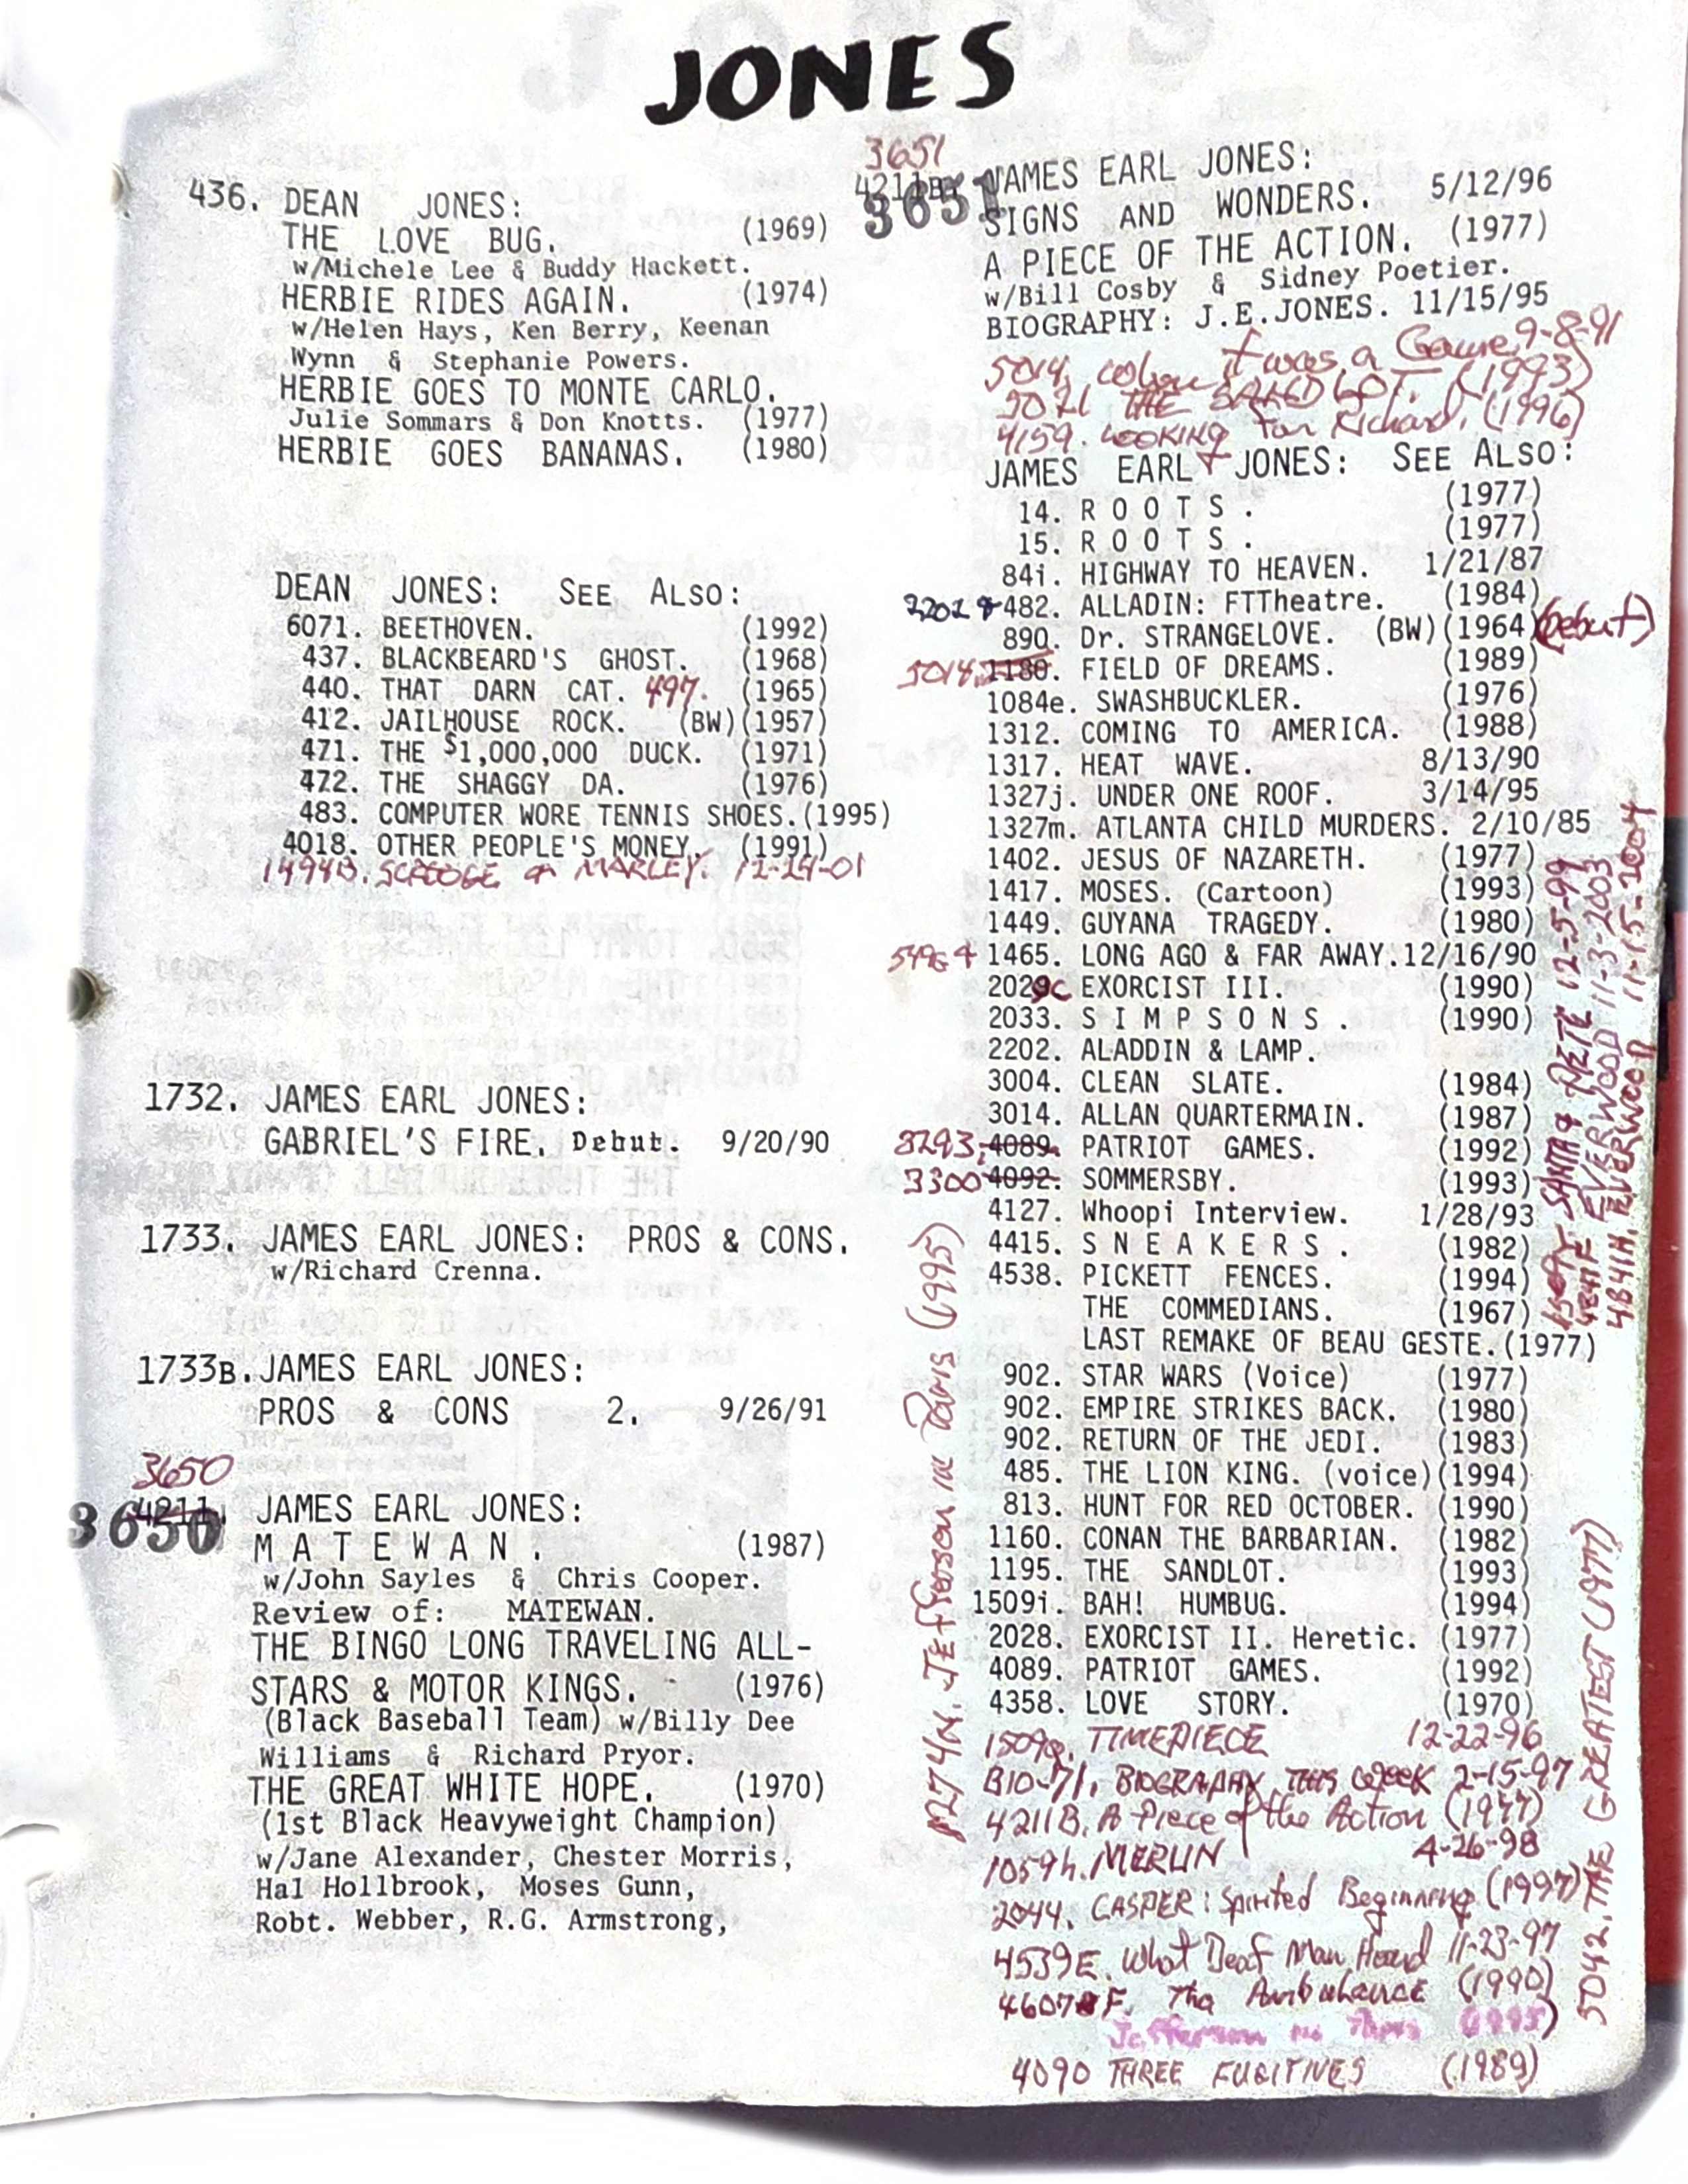 JONES
436. DEAN JONES:
THE LOVE BUG. (1969)
w/Michele Lee & Buddy Hackett.
HERBIE RIDES AGAIN. (1974)
w/Helen Hays, Ken Berry, Keenan
Wynn & Stephanie Powers.
HERBIE GOES TO MONTE CARLO.
Julie Sommars & Don Knotts. (1977)
HERBIE GOES BANANAS. (1980)
DEAN JONES: SEE ALSO:
6071. BEETHOVEN. (1992)
437. BLACKBEARD'S GHOST. (1968)
440. THAT DARN CAT. 497. (1965)
412. JAILHOUSE ROCK. (BW)(1957)
471. THE $1,000,000 DUCK. (1971)
472. THE SHAGGY DA. (1976)
483. COMPUTER WORE TENNIS SHOES.(1995)
4018. OTHER PEOPLE'S MONEY. (1991)
1494B. SCROOGE & MARLEY. 12-24-01
1732. JAMES EARL JONES:
GABRIEL'S FIRE. Debut. 9/20/90
1733. JAMES EARL JONES: PROS & CONS.
w/Richard Crenna.
1733B. JAMES EARL JONES:
PROS & CONS 2. 9/26/91
3650
3650 4211. JAMES EARL JONES:
MATEWAN. (1987)
w/John Sayles & Chris Cooper.
Review of: MATEWAN.
THE BINGO LONG TRAVELING ALL-
STARS & MOTOR KINGS. (1976)
(Black Baseball Team) w/Billy Dee
Williams & Richard Pryor.
THE GREAT WHITE HOPE. (1970)
(1st Black Heavyweight Champion)
w/Jane Alexander, Chester Morris,
Hal Hollbrook, Moses Gunn,
Robt. Webber, R.G. Armstrong,
3651
4211B. 3651 JAMES EARL JONES:
SIGNS AND WONDERS. 5/12/96
A PIECE OF THE ACTION. (1977)
w/Bill Cosby & Sidney Poetier.
BIOGRAPHY: J.E.JONES. 11/15/95
5014. When It was a Game. 9-8-91
5021 THE SANDLOT. (1993)
4159. LOOKING For Richard. (1996)
JAMES EARL JONES: SEE ALSO:
14. ROOTS. (1977)
15. ROOTS. (1977)
84i. HIGHWAY TO HEAVEN. 1/21/87
2202 & 482. ALLADIN: FTTheatre. (1984)
890. Dr. STRANGELOVE. (BW)(1964) (Debut)
5018. 1180. FIELD OF DREAMS. (1989)
1084e. SWASHBUCKLER. (1976)
1312. COMING TO AMERICA. (1988)
1317. HEAT WAVE. 8/13/90
1327j. UNDER ONE ROOF. 3/14/95
1327m. ATLANTA CHILD MURDERS. 2/10/85
1402. JESUS OF NAZARETH. (1977)
1417. MOSES. (Cartoon) (1993)
1449. GUYANA TRAGEDY. (1980)
1465. LONG AGO & FAR AWAY.12/16/90
2029c EXORCIST III. (1990)
2033. SIMPSONS. (1990)
2202. ALADDIN & LAMP.
3004. CLEAN SLATE. (1984)
3014. ALLAN QUARTERMAIN. (1987)
3293; 4089. PATRIOT GAMES. (1992)
3300 4092. SOMMERSBY. (1993)
4127. Whoopi Interview. 1/28/93
4415. SNEAKERS. (1982)
4538. PICKETT FENCES. (1994)
THE COMMEDIANS. (1967)
LAST REMAKE OF BEAU GESTE.(1977)
902. STAR WARS (Voice) (1977)
902. EMPIRE STRIKES BACK. (1980)
902. RETURN OF THE JEDI. (1983)
485. THE LION KING. (voice)(1994)
813. HUNT FOR RED OCTOBER. (1990)
1160. CONAN THE BARBARIAN. (1982)
1195. THE SANDLOT. (1993)
1509i. BAH! HUMBUG. (1994)
2028. EXORCIST II. Heretic. (1977)
4089. PATRIOT GAMES. (1992)
4358. LOVE STORY. (1970)
1509g. TIMEPIECE 12-22-96
BIO-71. BIOGRAPHY THIS Week 2-15-97
4211B. A Piece of the Action (1977)
1059h. MERLIN 4-26-98
2044. CASPER: Spirited Beginning (1997)
4539E. What Deaf Man Heard 11-23-97
4607F. The Ambulance (1990)
Jefferson in Paris (1995)
4090 THREE FUGITIVES (1989)
Jefferson in Paris (1995)
SANTA & PETE 12-5-99
EVERWOOD 11-3-2003
4841H. EVERWOOD 11-15-2004
5042. THE GREATEST (1977)